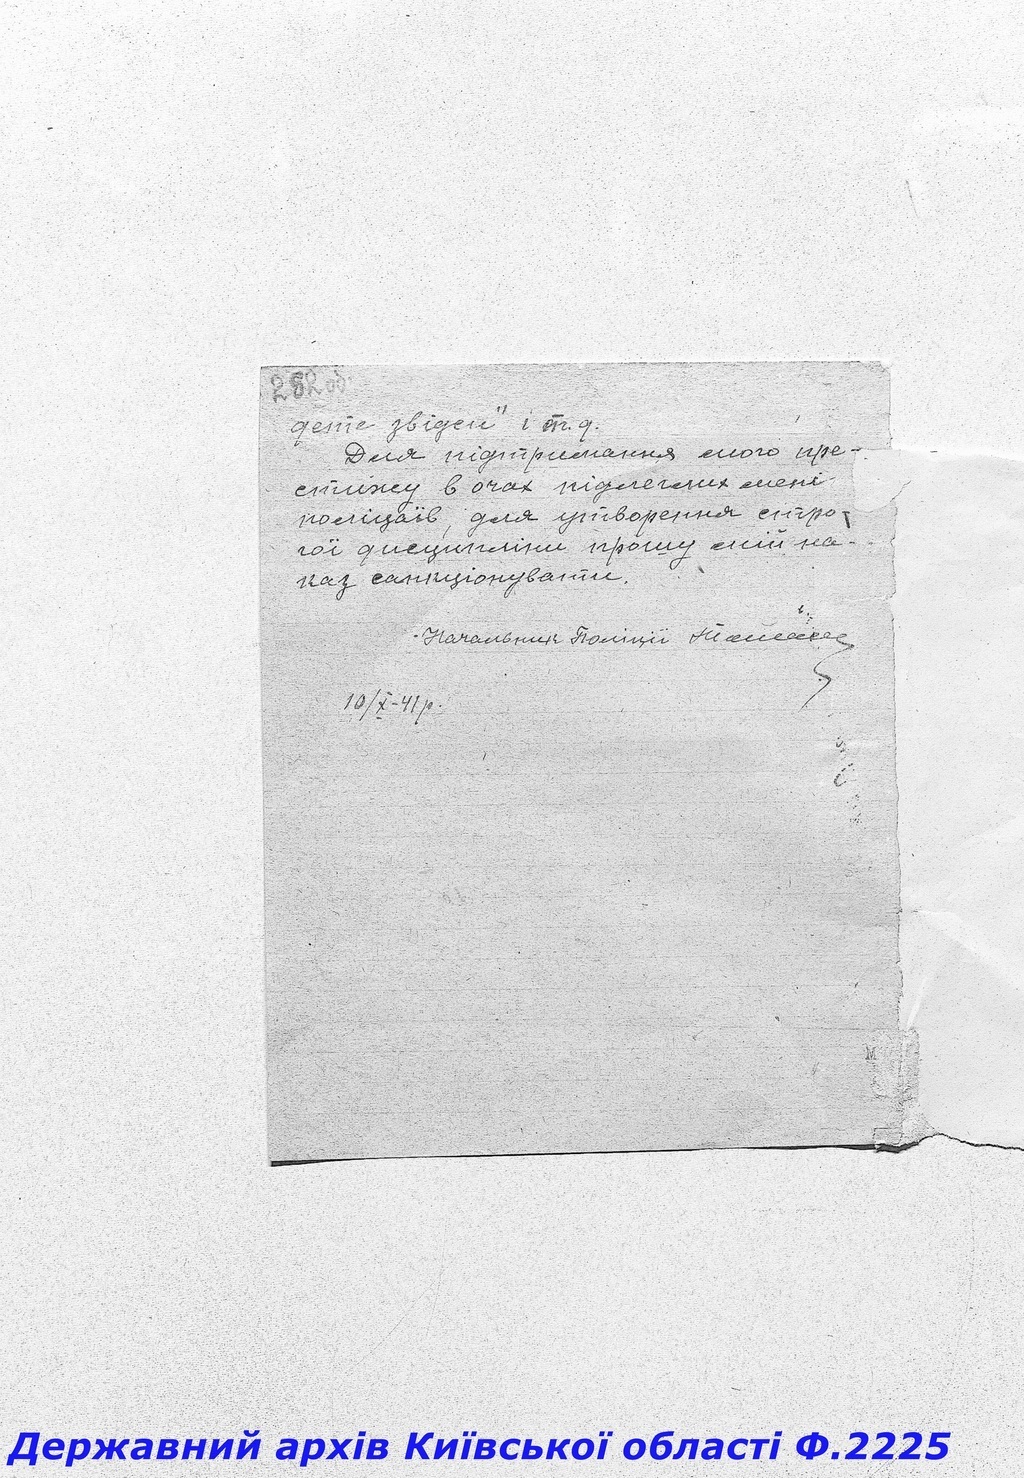 282 об
дете звідси" і т.д.
Для підтримання мого пре-
стіжу в очах підлеглих мені
поліцаїв, для утворення стро-
гої дисципліни прошу мій на-
каз санкціонувати.
Начальник Поліції
10/X-41р.
Державний архів Київської області Ф.2225